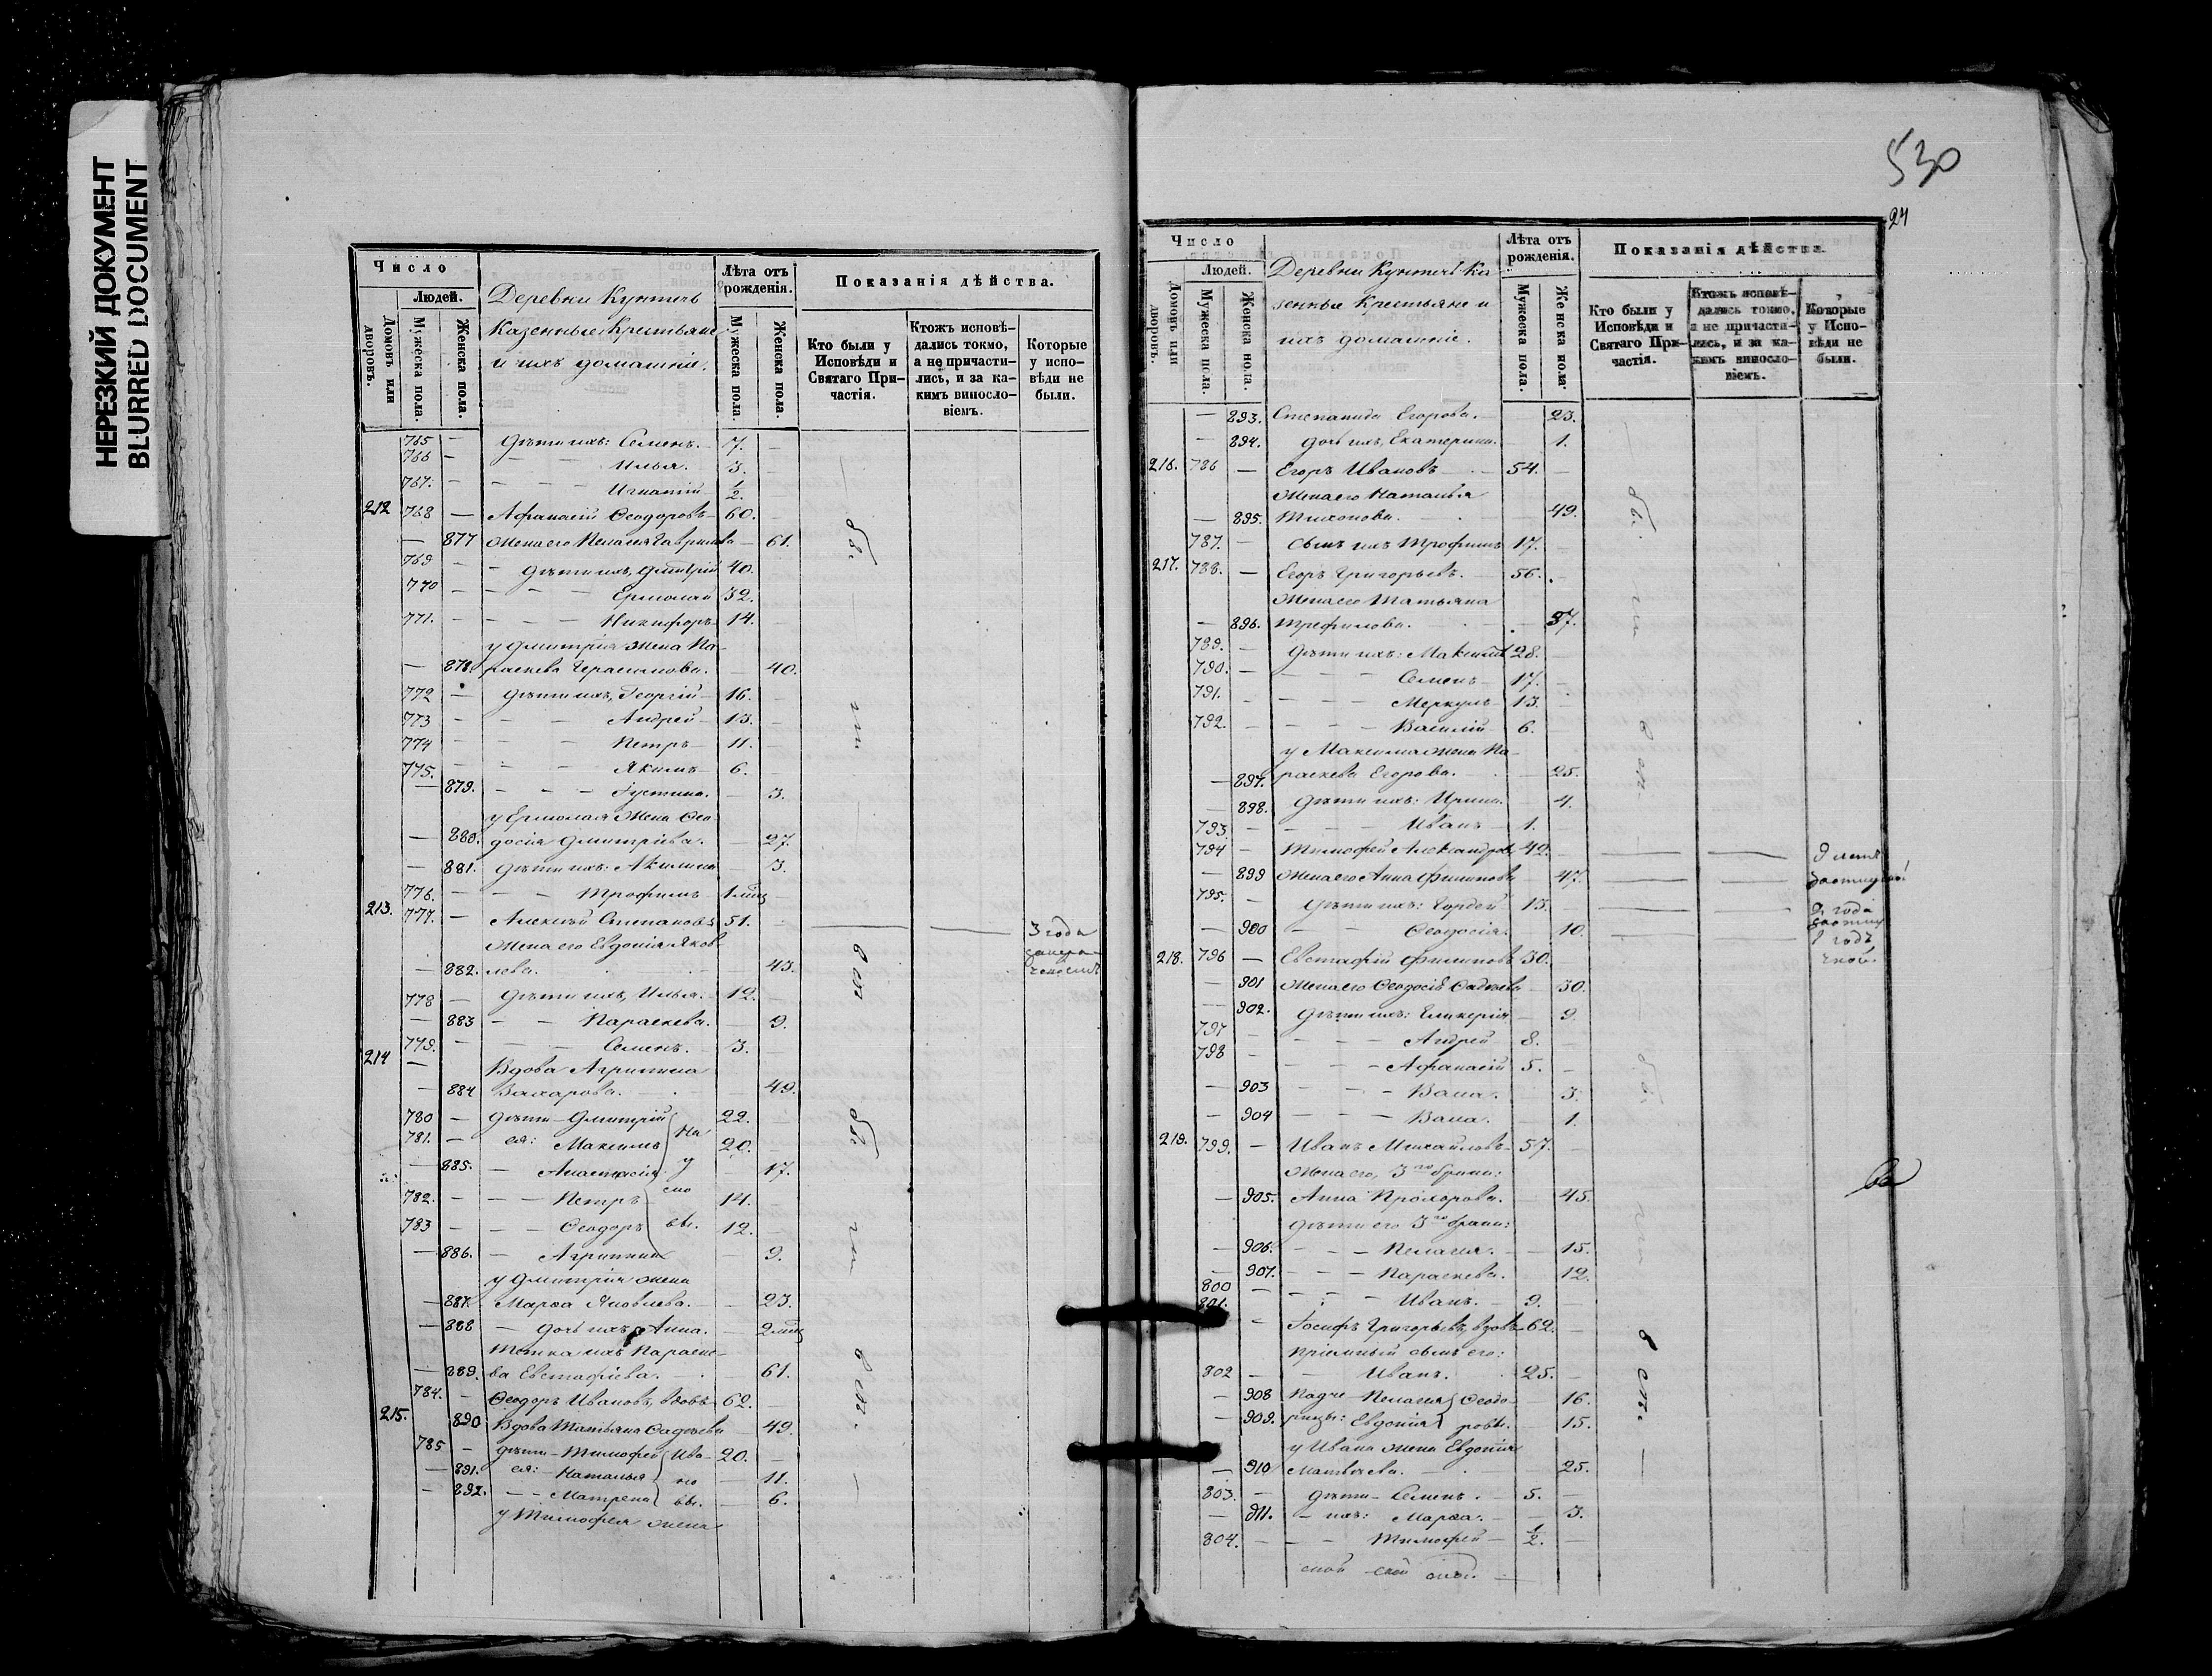 НЕРЕЗКИЙ ДОКУМЕНТ
BLURRED DOCUMENT
Число
Людей.
Домовъ или дворовъ.
Мужеска пола.
Женска пола.
Деревни Кунтичь
Казенные Крестьяне
и ихъ домашніе.
Лѣта отъ рожденія.
Мужеска пола.
Женска пола.
Показанія дѣйства.
Кто были у Исповѣди и Святаго Причастія.
Ктожъ исповѣдались токмо, а не причастились, и за какимъ винословіемъ.
Которые у исповѣди не были.
765 — дѣти ихъ: Семенъ. 7. —
766 — — — Илья. 3. —
767. — — — Игнатій ½. —
212 768 — Афанасій Ѳеодоровъ 60. —
— 877 Жена его Пелагея Гаврилова — 61.
769 — — дѣти ихъ, Дмитрій 40.
770 — — — — Ермолай 32.
771. — — — — Никифоръ 14. —
у Дмитрія жена Па-
— 878. раскева Герасимова. — 40.
772 — дѣти ихъ, Георгій 16. —
773 — — — Андрей 13. —
774 — — — Петръ 11. —
775. — — — Якимъ 6. —
— 879. — — — Іустина. — 3.
у Ермолая Жена Ѳео-
— 880. досія Дмитріева. — 27.
— 881. дѣти ихъ: Акилина — 3.
776. — — — Трофимъ 1 мѣц
213. 777. — Алексѣй Степановъ 51. — — — 3 года
Жена его Евдокія Яков-
— 882. лева. — 43.
778 — дѣти ихъ, Илья. 12. —
— 883 — — Параскева. — 9.
779. — — — Семенъ. 3. —
214 — Вдова Агрипина
— 884 Захарова. — 49.
780 — дѣти Дмитрій 22. —
781. — ея: Максимъ 20. —
— 885. — Анастасія — 17.
782. — — — Петръ 14. —
783 — — — Ѳеодоръ 12. —
— 886. — Агрипина — 9.
у Дмитрія жена
— 887. Марѳа Яковлева. — 23.
— 888 — дочь ихъ, Анна. — 2 мѣц
Тетка ихъ Параске-
— 889. ва Евстафіева. — 61.
784. — Ѳеодоръ Ивановъ, вдовъ 62. —
215. 890 Вдова Татьяна Фадѣева — 49.
785 — дѣти — Тимофей Ива- 20. —
— 891. ея: — Наталья но — 11.
— 892. — — Матрена вы. — 6.
у Тимофея жена
бы.
ли
всѣ
бы.
ли
всѣ.
530
24
Число
Людей.
Домовъ или дворовъ.
Мужеска пола
Женска пола.
Деревни Кунтичь Ка
зенные Крестьяне и
ихъ домашніе.
Лѣта отъ рожденія.
Мужеска пола.
Женска пола.
Показанія дѣйства.
Кто были у Исповѣди и Святаго Причастія.
Ктожъ исповѣдались токмо, а не причастились, и за какимъ винословіемъ.
Которые у Исповѣди не были.
— 893. Степанида Егорова. — 23.
— 894. дочь ихъ, Екатерина. — 1.
216. 786 — Егоръ Ивановъ — 54. —
Жена его Наталья
— 895. Тихонова. — 49.
787. — сынъ ихъ Трофимъ 17. —
217. 788. — Егоръ Григорьевъ. 56. —
Жена его Татьяна
— 896. Трефилова. — 57.
789. — дѣти ихъ: Максимъ 28. —
790. — — — Семенъ 17. —
791. — — — Меркулъ 13. —
792. — — — Василій 6. —
у Максима жена Па-
— 897. раскева Егорова. — 25.
— 898. дѣти ихъ: Ирина. 4.
793. — — — Иванъ 1. —
794 — Тимофей Александровъ 49. — — —
— 899 Жена его Анна Филипова — 47. — —
795. — дѣти ихъ: Гордей 15. — — —
— 900 — — Ѳеодосія. — 10. — —
218. 796 — Евстафій Филиповъ 30. —
— 901 Жена его Ѳеодосія Фадѣева — 30.
— 902. дѣти ихъ: Гликерія — 9.
797 — — — Андрей 8. —
798 — — — Афанасій 5. —
— 903 — — — Васа. — 3.
— 904 — — — Васа. — 1.
219. 799. — Иванъ Михайловъ 57. —
Жена его, 3го брака:
— 905. Анна Прохорова. — 45.
дѣти его 3го брака:
— 906. — — — Пелагея. — 15.
— 907. — — — Параскева. — 12.
800 — — — Иванъ. 9. —
801. — Іосифъ Григорьевъ, вдовъ 62. —
Пріемный сынъ его:
802 — — Иванъ. 25. —
— 908 Падче- Пелагея Ѳеодо- — 16.
— 909. рицы: Евдокія ровы. — 15.
у Ивана жена Евдокія
— 910 Матвѣева. — 25.
803. — дѣти — Семенъ. 5. —
— 911. — ихъ: Марѳа. — 3.
804. — — — Тимофей ½. —
бы.
ли
всѣ
бы.
ли
всѣ.